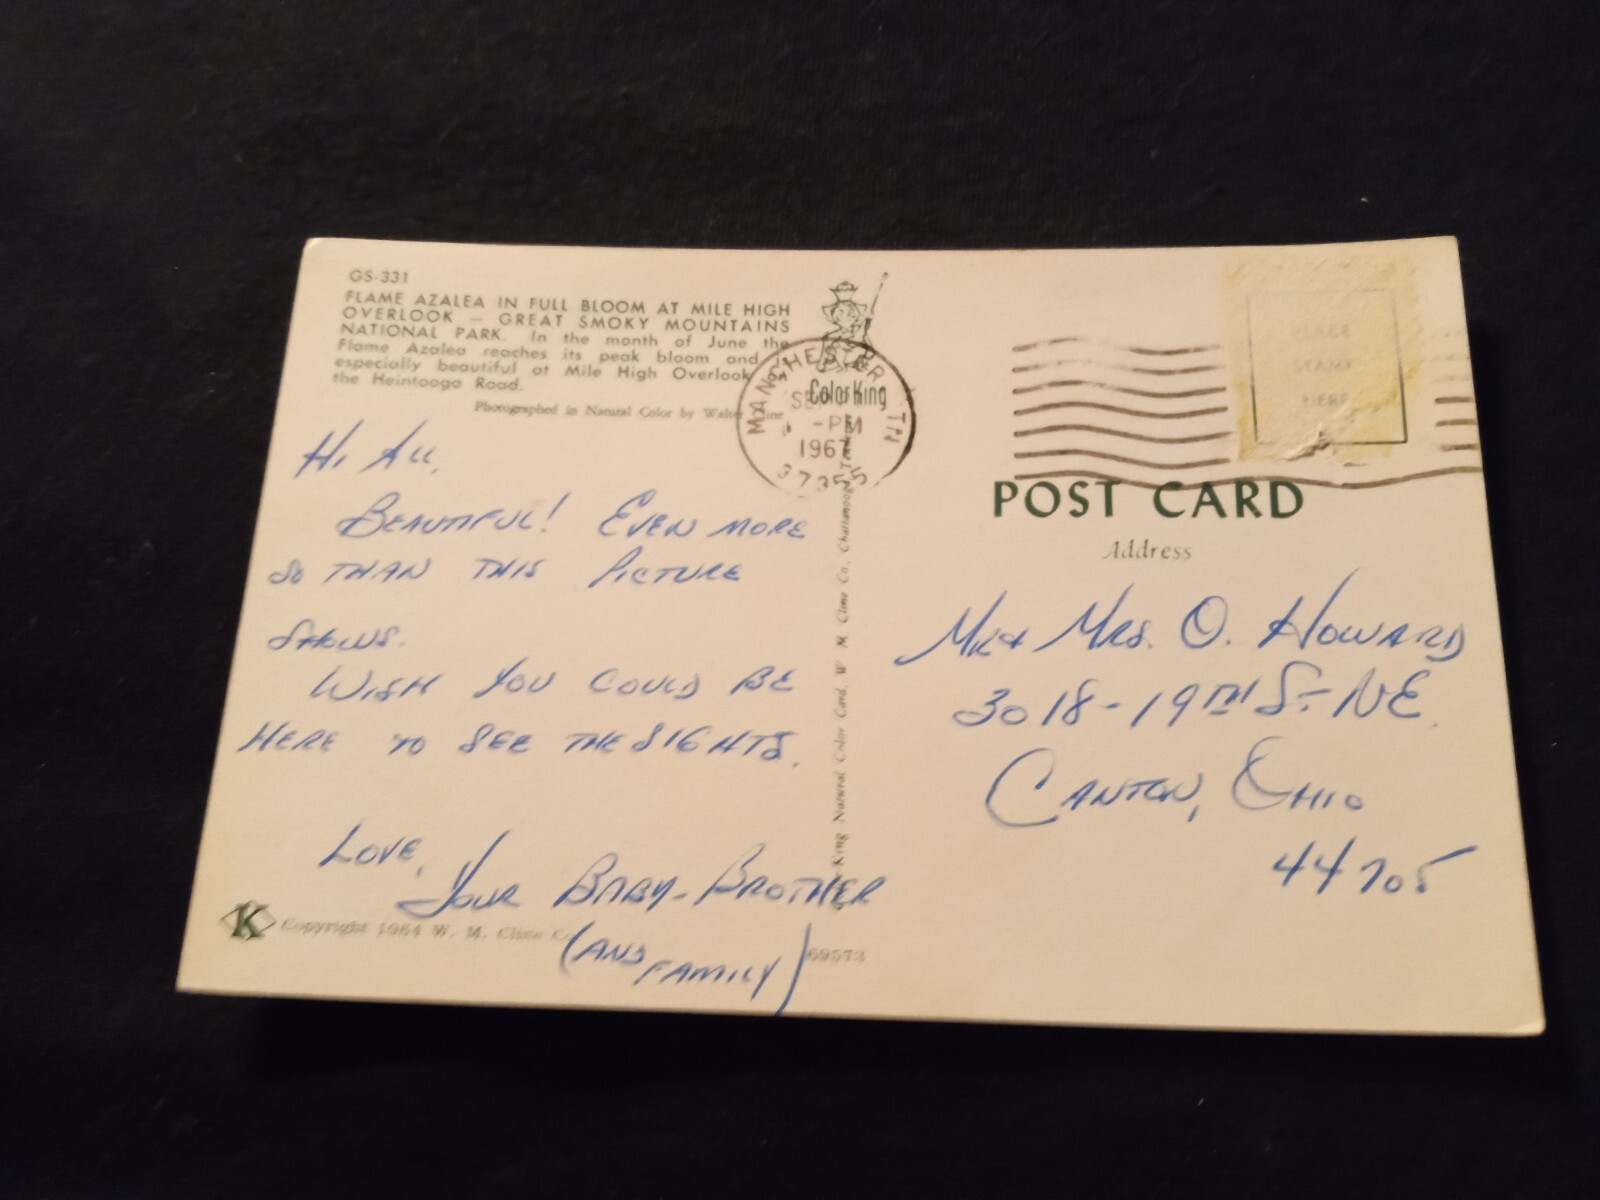 GS-331
FLAME AZALEA IN FULL BLOOM AT MILE HIGH
OVERLOOK — GREAT SMOKY MOUNTAINS
NATIONAL PARK. In the month of June the
Flame Azalea reaches its peak bloom and is
especially beautiful at Mile High Overlook
the Heintooga Road.
Photographed in Natural Color by Walter Cline
HI ALL,
BEAUTIFUL! EVEN MORE
SO THAN THIS PICTURE
SHOWS.
WISH YOU COULD BE
HERE TO SEE THE SIGHTS.
LOVE,
YOUR BABY-BROTHER
(AND FAMILY)
K
Copyright 1964 W. M. Cline Co
69573
Color King
King Natural Color Card, W. M. Cline Co., Chattanooga, Tenn.
MANCHESTER TN
SEP
-PM
1967
37355
PLACE
STAMP
HERE
POST CARD
Address
MR & MRS. O. HOWARD
3018-19TH ST. NE.
CANTON, OHIO
44705